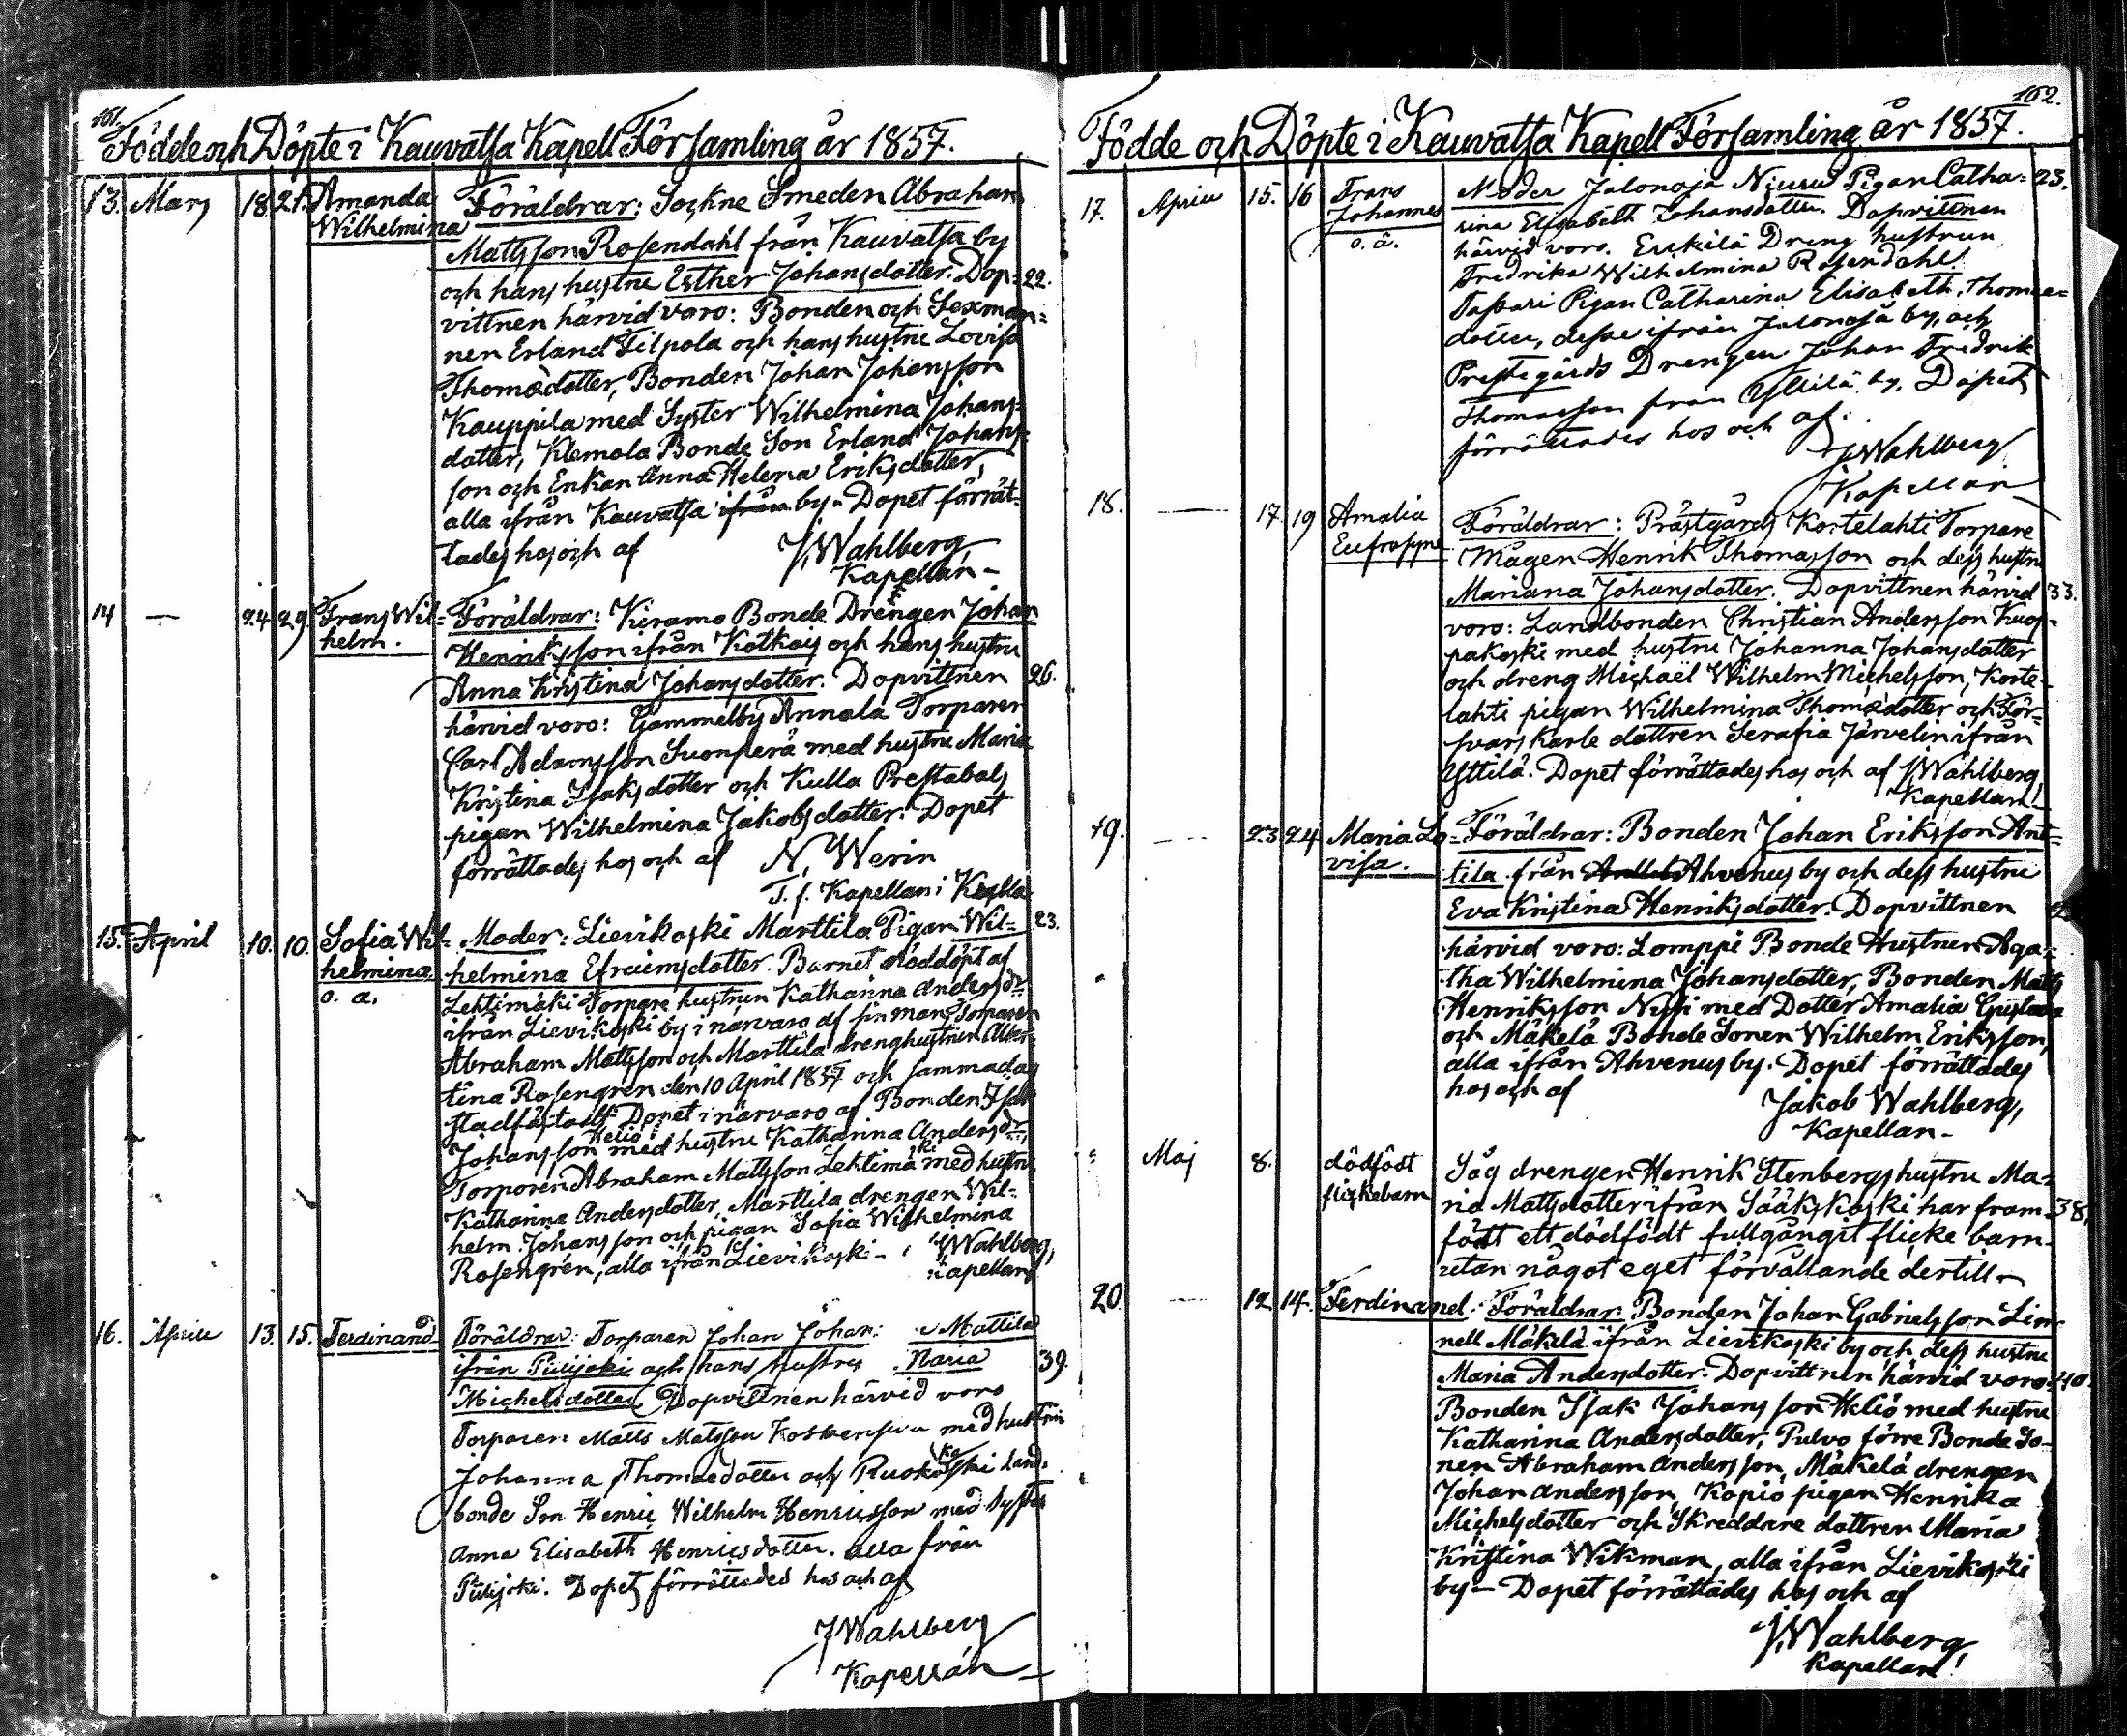 101.
Födde och Döpte i Kauvatsa Kapell Församling år 1857.
13. Mars 18 21. Amanda Wilhelmina
Föräldrar: Sockne Smeden Abraham
Mattsson Rosendahl från Kauvatsa by
och hans hustru Esther Johansdotter. Dop= 22.
vittnen härvid voro: Bonden och Sexman=
nen Erland Filpola och hans hustru Lovisa
Thomædotter, Bonden Johan Johansson
Kauppila med Syster Wilhelmina Johans=
dotter, Klemola Bonde Son Erland Johans=
son och Enkan Anna Helena Eriksdotter,
alla ifrån Kauvatsa ifrån by. Dopet förrät=
tades hos och af J. Wahlberg,
Kapellan
14 — 24 29 Frans Wil=
helm.
Föräldrar: Kieramo Bonde Drengen Johan
Henriksson ifrån Kotkas och hans hustru
Anna Kristina Johansdotter. Dopvittnen 26.
härvid voro: Gammelby Annala Torparen
Carl Adamsson Suonperä med hustru Maria
Kristina Isaksdotter och Kulla Prestabals
pigan Wilhelmina Jakobsdotter. Dopet
förrättades hos och af N. Werin
T. f. Kapellan i
15. April 10. 10. Sofia Wil=
helmina
o. ä.
Moder: Lievikoski Marttila Pigan Wil= 23.
helmina Efraimsdotter. Barnet nöddöpt af
Lehtimäki Torpare hustrun Katharina Andersdr
ifrån Lievikoski by i närvaro af sin man Torparen
Abraham Mattsson och Marttila drenghustrun Alber=
tina Rosengren den 10 April 1857 och samma dag
stadfästades Dopet i närvaro af Bonden Isak
Johansson Heliö med hustru Katharina Andersdr,
Torparen Abraham Mattsson Lehtimäki med hustru
Katharina Andersdotter, Marttila drengen Wil=
helm Johansson och pigan Sofia Wilhelmina
Rosengrén, alla ifrån Lievikoski. J. Wahlberg,
Kapellan
16. Aprill 13. 15. Ferdinand
Föräldrar: Torparen Johan Johan: Mattila
ifrån Piilijoki och hans hustru Maria 39.
Michelsdotter. Dopvittnen härvid voro
Torparen Matts Matsson med hustrun
Johanna Thomædotter och Ruokoski Land=
bonde Son Henric Wilhelm Henricsson med Syster
Anna Elisabeth Henricsdotter. alla från
Piilijoki. Dopet förrättades hos och af
J Wahlberg
Kapellan
102.
Födde och Döpte i Kauvatsa Kapell Församling år 1857.
17. Aprill 15. 16 Frans
Johannes
o. ä.
Moder Jalonoja Pigan Catha= 23.
rina Elisabeth Johansdotter. Dopvittnen
härvid voro. Erikilä Dreng hustrun
Fredrika Wilhelmina Rosendahl
Tassari Pigan Catharina Elisabeth Thomæ=
dotter, desse ifrån Jalonoja by, och
Prestegårds Drengen Johan Fredrik
Thomasson från Yttilä by, Dopet
förrättades hos och af.
J Wahlberg
Kapellan
18. — 17 19 Amalia
Eufrosyne
Föräldrar: Prästgårds Kortelahti Torpare
Mågen Henrik Thomasson och dess hustru
Mariana Johansdotter. Dopvittnen härvid 33.
voro: Landbonden Christian Andersson Kuop=
pakoski med hustru Johanna Johansdotter
och dreng Michaël Wilhelm Michelsson, Korte=
lahti pigan Wilhelmina Thomædotter och För=
svars Karle dottren Serafia Järvelin ifrån
Yttilä. Dopet förrättades hos och af J. Wahlberg,
Kapellan
19. — 23 24 Maria Lo=
visa.
Föräldrar: Bonden Johan Eriksson Ant=
tila från Ahvenus by och dess hustru
Eva Kristina Henriksdotter. Dopvittnen
härvid voro: Lomppi Bonde Hustrun Aga=
tha Wilhelmina Johansdotter, Bonden Matts
Henriksson Nissi med Dotter Amalia Gustava
och Mäkelä Bonde Sonen Wilhelm Eriksson,
alla ifrån Ahvenus by. Dopet förrättades
hos och af
Jakob Wahlberg,
Kapellan
Maj 8. dödfödt
flickebarn
Såg drengen Henrik Stenbergs hustru Ma=
ria Mattsdotter ifrån Sääkskoski har fram= 38,
födt ett dödfödt fullgångit flicke barn
utan något eget förvållande dertill
20. — 12 14. Ferdinand.
Föräldrar: Bonden Johan Gabrielsson Lin=
nell Mäkelä ifrån Lievikoski by och dess hustru
Maria Andersdotter. Dopvittnen härvid voro: 40.
Bonden Isak Johansson Heliö med hustru
Katharina Andersdotter, Pulvo förre Bonde So=
nen Abraham Andersson, Mäkelä drengen
Johan Andersson, Kopio pigan Henrika
Michelsdotter och Skreddare dottren Maria
Kristina Wikman, alla ifrån Lievikoski
by — Dopet förrättades hos och af
J. Wahlberg,
Kapellan